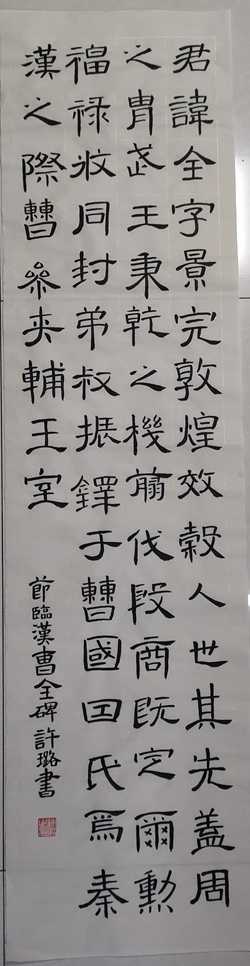 君諱全字景完敦煌效穀人也其先蓋周
之胄武王秉乾之機翦伐殷商既定爾勳
福禄攸同封弟叔振鐸于曹國因氏焉秦
漢之際曹參夾輔王室
節臨漢曹全碑許璐書